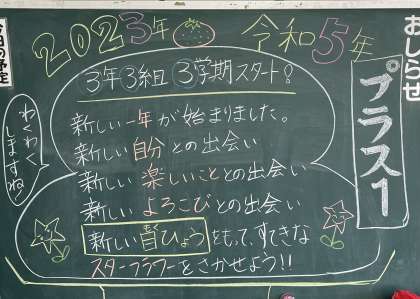 2023年 令和5年
おしらせ
今日の予定
プラス1
3年3組 3学期スタート!
新しい一年が始まりました。
新しい自分との出会い
新しい楽しいこととの出会い
新しいよろこびとの出会い
新しい目ひょうをもって、すてきな
スターフラワーをさかせよう!!
わくわく
しますね!